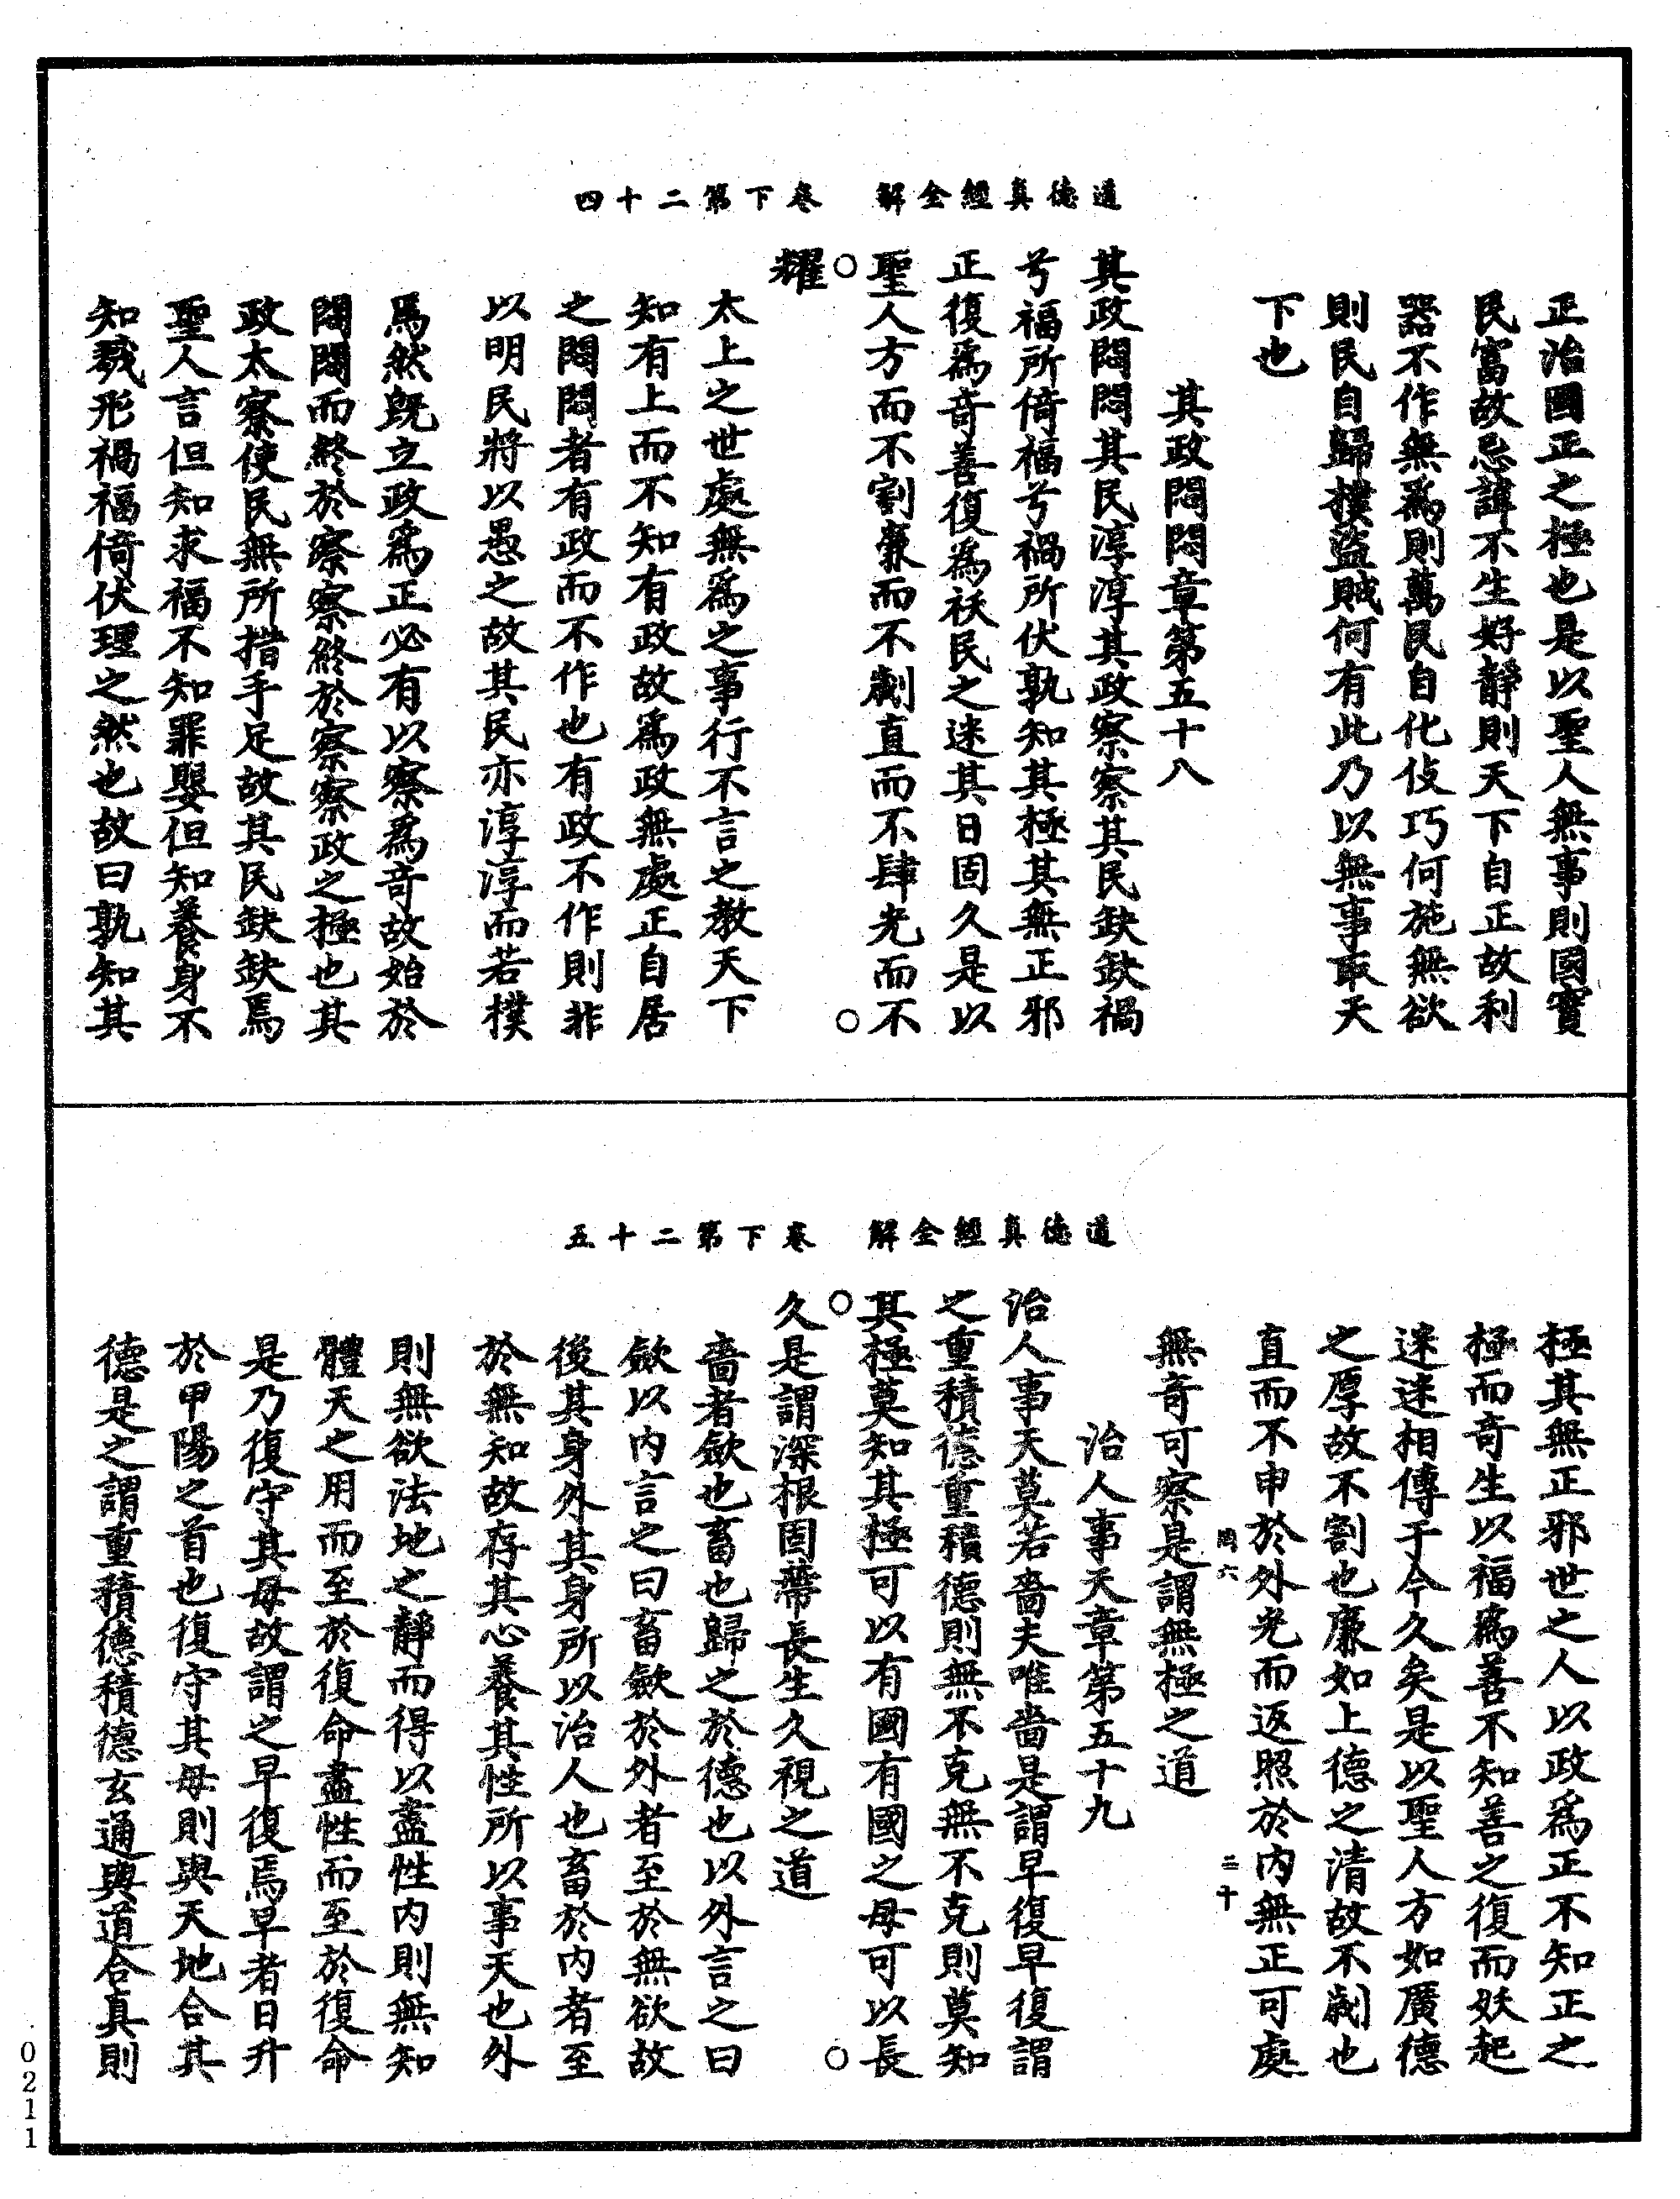 道德真經全解　卷下第二十四
正治國正之極也是以聖人無事則國實
民富故忌諱不生好靜則天下自正故利
器不作無爲則萬民自化伎巧何施無欲
則民自歸樸盜賊何有此乃以無事取天
下也
其政悶悶章第五十八
其政悶悶其民淳淳其政察察其民缺缺禍
兮福所倚福兮禍所伏孰知其極其無正邪
正復爲奇善復爲祅民之迷其日固久是以
聖人方而不割廉而不劌直而不肆光而不
耀
太上之世處無爲之事行不言之教天下
知有上而不知有政故爲政無處正自居
之悶悶者有政而不作也有政不作則非
以明民將以愚之故其民亦淳淳而若樸
焉然旣立政爲正必有以察爲奇故始於
悶悶而終於察察終於察察政之極也其
政太察使民無所措手足故其民缺缺焉
聖人言但知求福不知罪嬰但知養身不
知戮形禍福倚伏理之然也故曰孰知其
道德真經全解　卷下第二十五
極其無正邪世之人以政爲正不知正之
極而奇生以福爲善不知善之復而妖起
迷迷相傳于今久矣是以聖人方如廣德
之厚故不割也廉如上德之清故不劌也
直而不申於外光而返照於內無正可處
罔六　三十
無奇可察是謂無極之道
治人事天章第五十九
治人事天莫若嗇夫唯嗇是謂早復早復謂
之重積德重積德則無不克無不克則莫知
其極莫知其極可以有國有國之母可以長
久是謂深根固蔕長生久視之道
嗇者歛也畜也歸之於德也以外言之曰
歛以內言之曰畜歛於外者至於無欲故
後其身外其身所以治人也畜於內者至
於無知故存其心養其性所以事天也外
則無欲法地之靜而得以盡性內則無知
體天之用而至於復命盡性而至於復命
是乃復守其母故謂之早復焉早者日升
於甲陽之首也復守其母則與天地合其
德是之謂重積德積德玄通與道合真則
0211